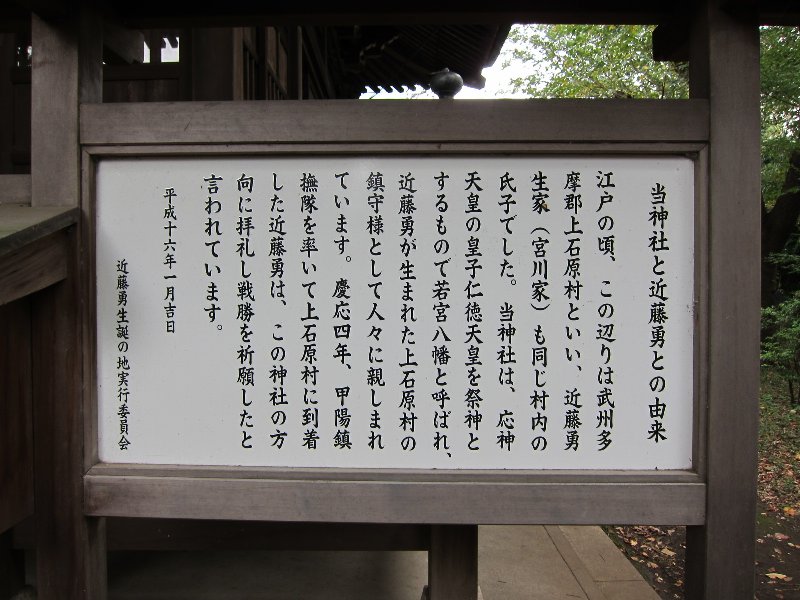 当神社と近藤勇との由来
江戸の頃、この辺りは武州多
摩郡上石原村といい、近藤勇
生家（宮川家）も同じ村内の
氏子でした。当神社は、応神
天皇の皇子仁徳天皇を祭神と
するもので若宮八幡と呼ばれ、
近藤勇が生まれた上石原村の
鎮守様として人々に親しまれ
ています。慶応四年、甲陽鎮
撫隊を率いて上石原村に到着
した近藤勇は、この神社の方
向に拝礼し戦勝を祈願したと
言われています。
平成十六年一月吉日
近藤勇生誕の地実行委員会